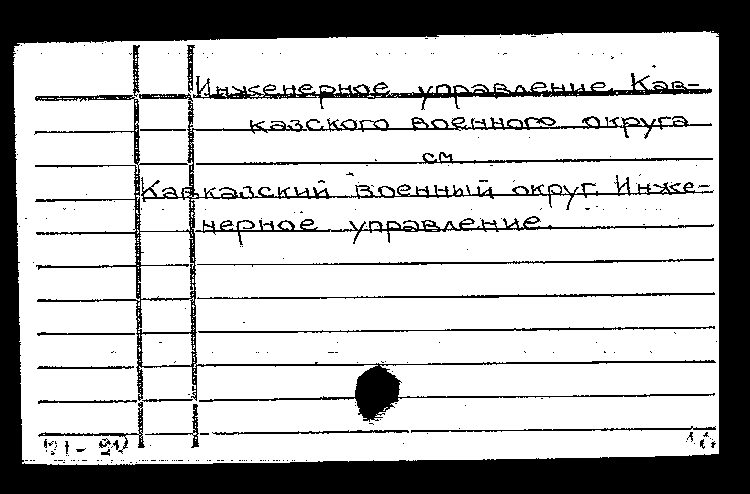 Инженерное управление Кав-
казского военного округа
см.
Кавказский военный округ. Инже-
нерное управление.